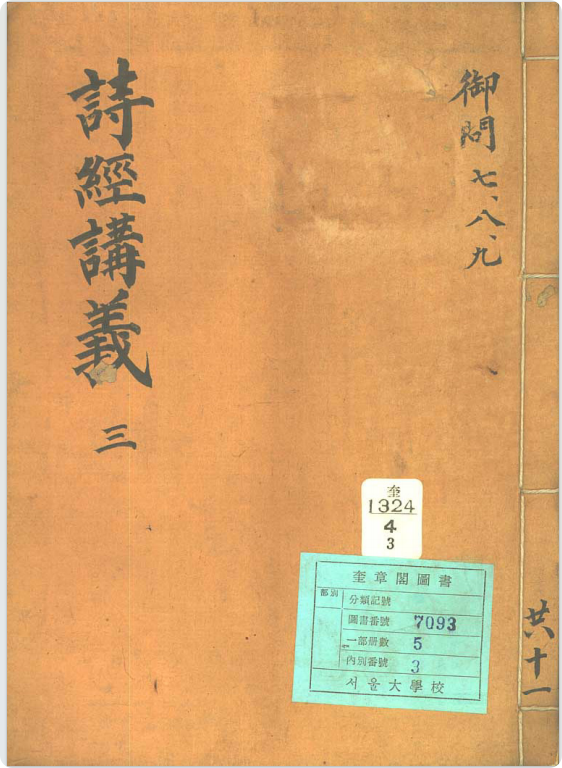 御問 七、八、九
詩經講義 三
共十一
奎
1324
4
3
奎章閣圖書
部別
分類記號
圖書番號 7093
一部册數 5
內別番號 3
서울大學校